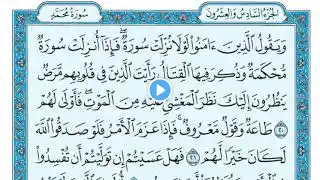 الجُزْءُ السَّادِسُ وَالعِشْرُونَ
سُورَةُ مُحَمَّدٍ
وَيَقُولُ ٱلَّذِينَ ءَامَنُواْ لَوْلَا نُزِّلَتْ سُورَةٌۖ فَإِذَآ أُنزِلَتْ سُورَةٌ
مُّحْكَمَةٌ وَذُكِرَ فِيهَا ٱلْقِتَالُ رَأَيْتَ ٱلَّذِينَ فِي قُلُوبِهِم مَّرَضٌ
يَنظُرُونَ إِلَيْكَ نَظَرَ ٱلْمَغْشِيِّ عَلَيْهِ مِنَ ٱلْمَوْتِۖ فَأَوْلَىٰ لَهُمْ ٢٠
طَاعَةٌ وَقَوْلٌ مَّعْرُوفٌۚ فَإِذَا عَزَمَ ٱلْأَمْرُ فَلَوْ صَدَقُواْ ٱللَّهَ
لَكَانَ خَيْرًا لَّهُمْ ٢١ فَهَلْ عَسَيْتُمْ إِن تَوَلَّيْتُمْ أَن تُفْسِدُواْ